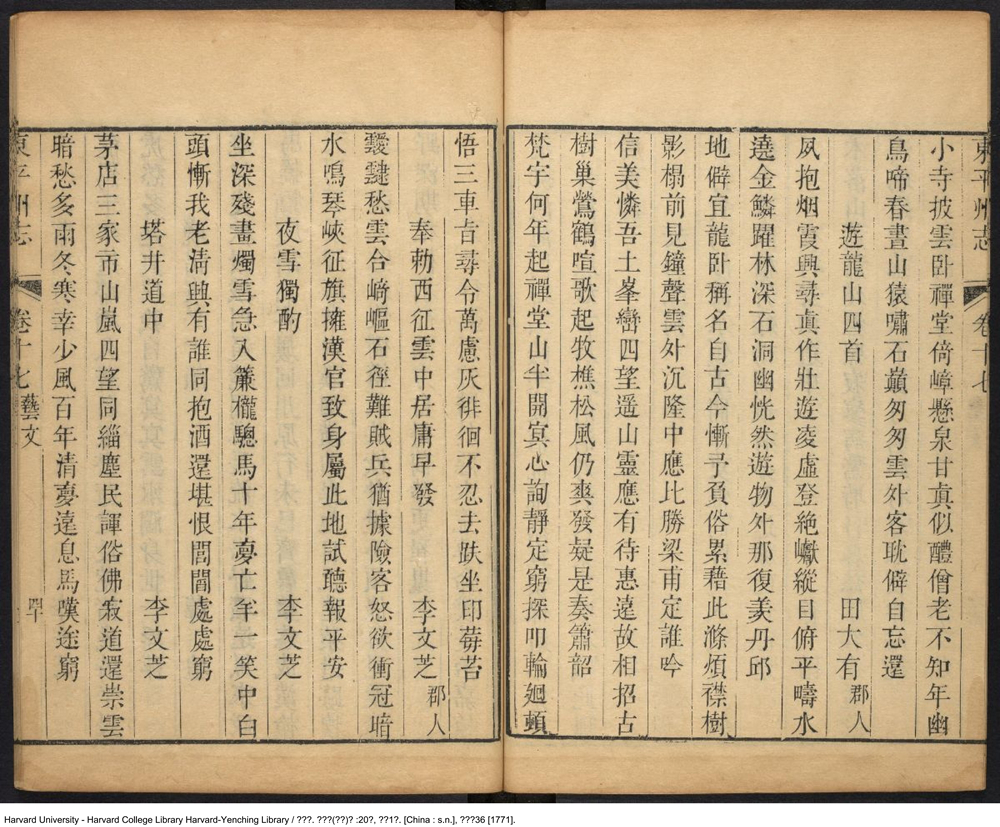 東平州志
卷十七
小寺披雲卧禪堂倚嶂懸泉甘真似醴僧老不知年幽
鳥啼春晝山猿嘯石巔匆匆雲外客耽僻自忘還
遊龍山四首
田大有 郡人
夙抱烟霞興尋真作壯遊凌虛登絶巘縱目俯平疇水
遶金鱗躍林深石洞幽恍然遊物外那復羨丹邱
地僻宜龍卧稱名自古今慚予負俗累藉此滌煩襟樹
影榻前見鐘聲雲外沉隆中應比勝梁甫定誰吟
信美憐吾土峯巒四望遥山靈應有待惠遠故相招古
樹巢鶯鶴喧歌起牧樵松風仍爽發疑是奏簫韶
梵宇何年起禪堂山半開冥心詢静定窮探叩輪廻頓
悟三車旨尋令萬慮灰徘徊不忍去趺坐印莓苔
奉勅西征雲中居庸早發
李文芝 郡人
靉靆愁雲合﨑嶇石徑難賊兵猶據險客怒欲衝冠暗
水鳴琴峽征旗擁漢官致身屬此地試聽報平安
夜雪獨酌
李文芝
坐深殘畫燭雪急入簾櫳驄馬十年夢亡羊一笑中白
頭慚我老淸興有誰同抱酒還堪恨閭閻處處窮
塔井道中
李文芝
茅店三家市山嵐四望同緇塵民諢俗佛寂道還崇雲
暗愁多雨冬寒幸少風百年清夢遠息馬嘆途窮
東平州志
卷十七
藝文
四十
Harvard University - Harvard College Library Harvard-Yenching Library / ???. ???(??)? :20?, ??1?. [China : s.n.], ???36 [1771].